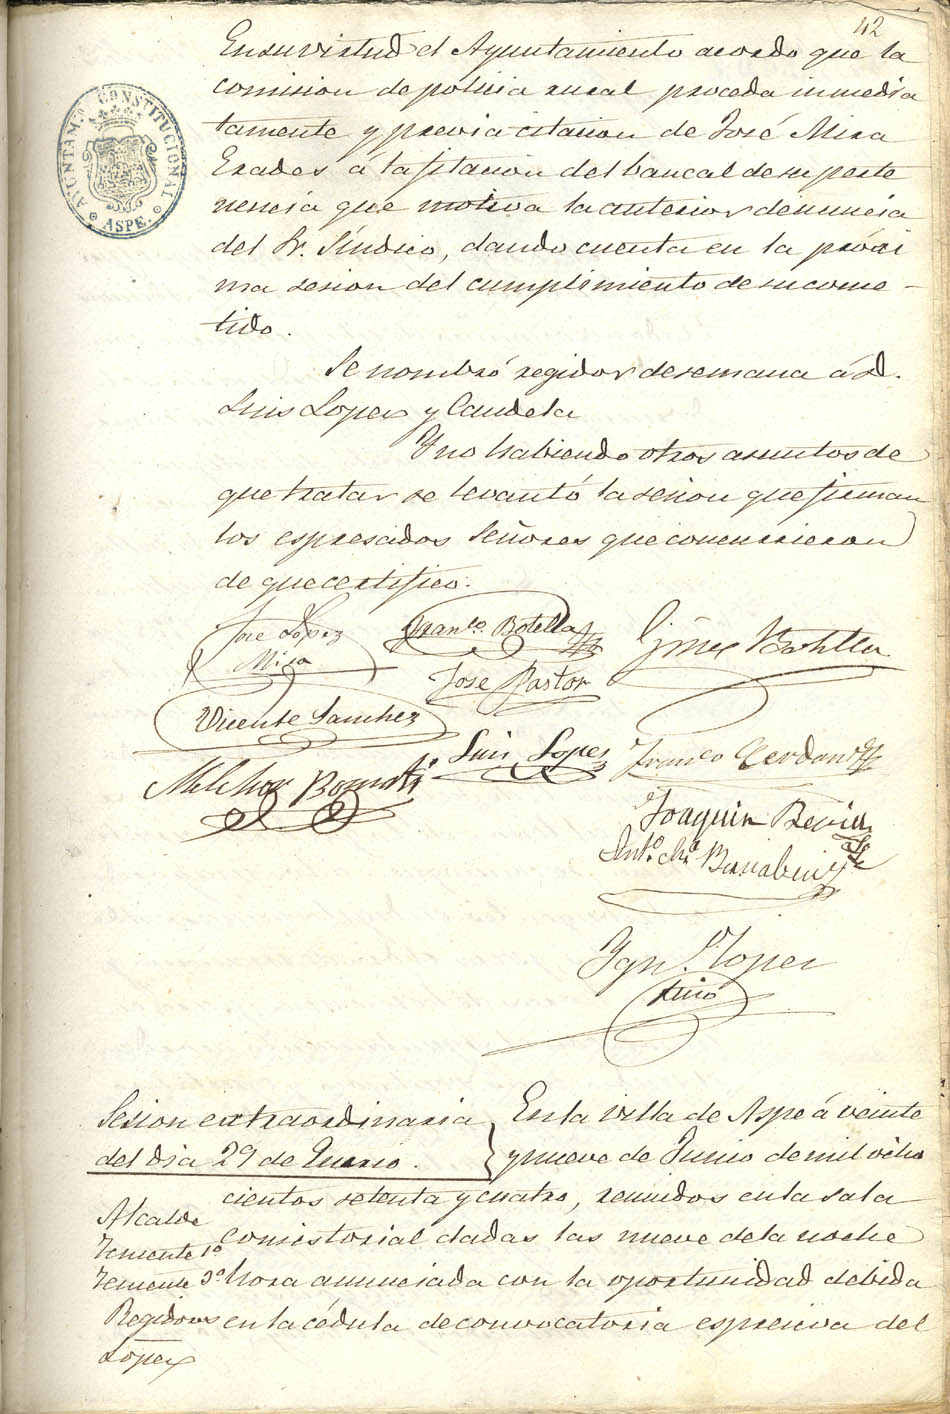 42
AYUNTAM.º CONSTITUCIONAL
ASPE.
En su virtud el Ayuntamiento acordo que la
comision de policia rural proceda inmedia
tamente y previa citacion de José Mira
Erades á la fitacion del bancal de su perte
nencia que motiva la anterior denuncia
del Sr. Síndico, dando cuenta en la próxi
ma sesion del cumplimiento de su come-
tido.
Se nombró regidor de semana á D.
Luis Lopez y Candela
Y no habiendo otros asuntos de
que tratar se levantó la sesion que firman
los espresados Señores que concurrieron
de que certifico.
José López
Mira
Franco. Botella
Gines Botella
José Pastor
Vicente Sanchez
Luis Lopez
Franco Cerdan
Melchor
Joaquin
Anto.
Ign.
Lopez
Sesion extraordinaria
del dia 29 de Enero.
En la villa de Aspe á veinte
y nueve de Junio de mil ocho
cientos setenta y cuatro, reunidos en la sala
consistorial dadas las nueve de la noche
hora anunciada con la oportunidad debida
en la cédula de convocatoria espresiva del
Alcalde
Teniente 1º
Teniente 3º
Regidores
Lopez